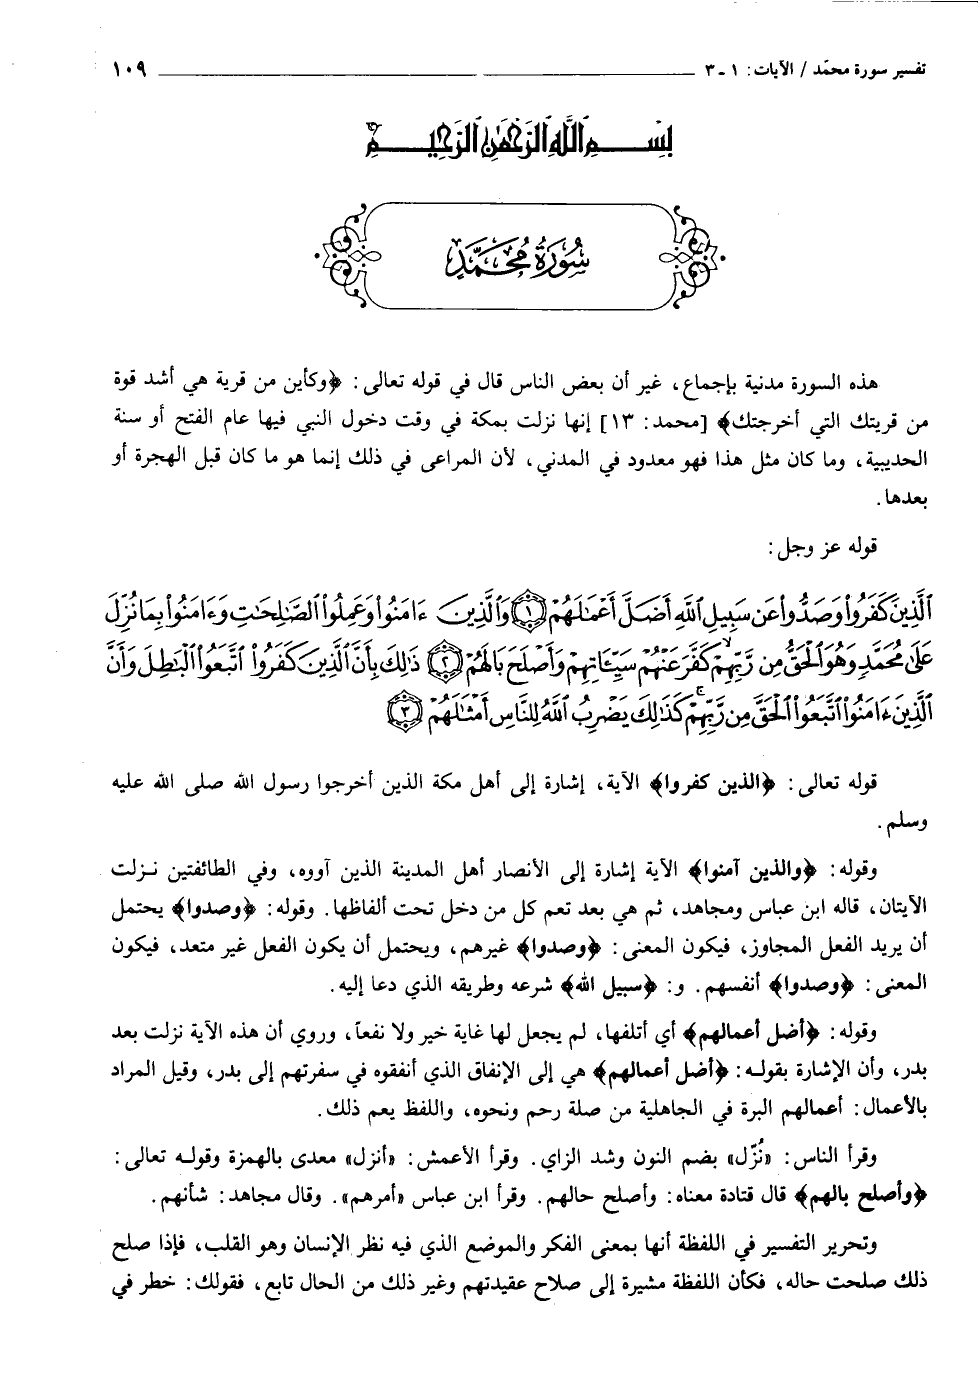 تفسير سورة محمّد / الآيات: ١ ـ ٣ ١٠٩
بِسْمِ ٱللَّهِ ٱلرَّحْمَٰنِ ٱلرَّحِيمِ
سُورَةُ مُحَمَّدٍ
هذه السورة مدنية بإجماع، غير أن بعض الناس قال في قوله تعالى: ﴿وكأين من قرية هي أشد قوة
من قريتك التي أخرجتك﴾ [محمد: ١٣] إنها نزلت بمكة في وقت دخول النبي فيها عام الفتح أو سنة
الحديبية، وما كان مثل هذا فهو معدود في المدني، لأن المراعى في ذلك إنما هو ما كان قبل الهجرة أو
بعدها.
قوله عز وجل:
ٱلَّذِينَ كَفَرُوا۟ وَصَدُّوا۟ عَن سَبِيلِ ٱللَّهِ أَضَلَّ أَعْمَٰلَهُمْ ﴿١﴾ وَٱلَّذِينَ ءَامَنُوا۟ وَعَمِلُوا۟ ٱلصَّٰلِحَٰتِ وَءَامَنُوا۟ بِمَا نُزِّلَ
عَلَىٰ مُحَمَّدٍ وَهُوَ ٱلْحَقُّ مِن رَّبِّهِمْ ۙ كَفَّرَ عَنْهُمْ سَيِّـَٔاتِهِمْ وَأَصْلَحَ بَالَهُمْ ﴿٢﴾ ذَٰلِكَ بِأَنَّ ٱلَّذِينَ كَفَرُوا۟ ٱتَّبَعُوا۟ ٱلْبَٰطِلَ وَأَنَّ
ٱلَّذِينَ ءَامَنُوا۟ ٱتَّبَعُوا۟ ٱلْحَقَّ مِن رَّبِّهِمْ ۚ كَذَٰلِكَ يَضْرِبُ ٱللَّهُ لِلنَّاسِ أَمْثَٰلَهُمْ ﴿٣﴾
قوله تعالى: ﴿الذين كفروا﴾ الآية، إشارة إلى أهل مكة الذين أخرجوا رسول الله صلى الله عليه
وسلم.
وقوله: ﴿والذين آمنوا﴾ الآية إشارة إلى الأنصار أهل المدينة الذين آووه، وفي الطائفتين نـزلت
الآيتان، قاله ابن عباس ومجاهد، ثم هي بعد تعم كل من دخل تحت ألفاظها. وقوله: ﴿وصدوا﴾ يحتمل
أن يريد الفعل المجاوز، فيكون المعنى: ﴿وصدوا﴾ غيرهم، ويحتمل أن يكون الفعل غير متعد، فيكون
المعنى: ﴿وصدوا﴾ أنفسهم. و: ﴿سبيل الله﴾ شرعه وطريقه الذي دعا إليه.
وقوله: ﴿أضل أعمالهم﴾ أي أتلفها، لم يجعل لها غاية خير ولا نفعاً، وروي أن هذه الآية نزلت بعد
بدر، وأن الإشارة بقولـه: ﴿أضل أعمالهم﴾ هي إلى الإنفاق الذي أنفقوه في سفرتهم إلى بدر، وقيل المراد
بالأعمال: أعمالهم البرة في الجاهلية من صلة رحم ونحوه، واللفظ يعم ذلك.
وقرأ الناس: «نُزّل» بضم النون وشد الزاي. وقرأ الأعمش: «أنزل» معدى بالهمزة وقولـه تعالى:
﴿وأصلح بالهم﴾ قال قتادة معناه: وأصلح حالهم. وقرأ ابن عباس «أمرهم». وقال مجاهد: شأنهم.
وتحرير التفسير في اللفظة أنها بمعنى الفكر والموضع الذي فيه نظر الإنسان وهو القلب، فإذا صلح
ذلك صلحت حاله، فكأن اللفظة مشيرة إلى صلاح عقيدتهم وغير ذلك من الحال تابع، فقولك: خطر في